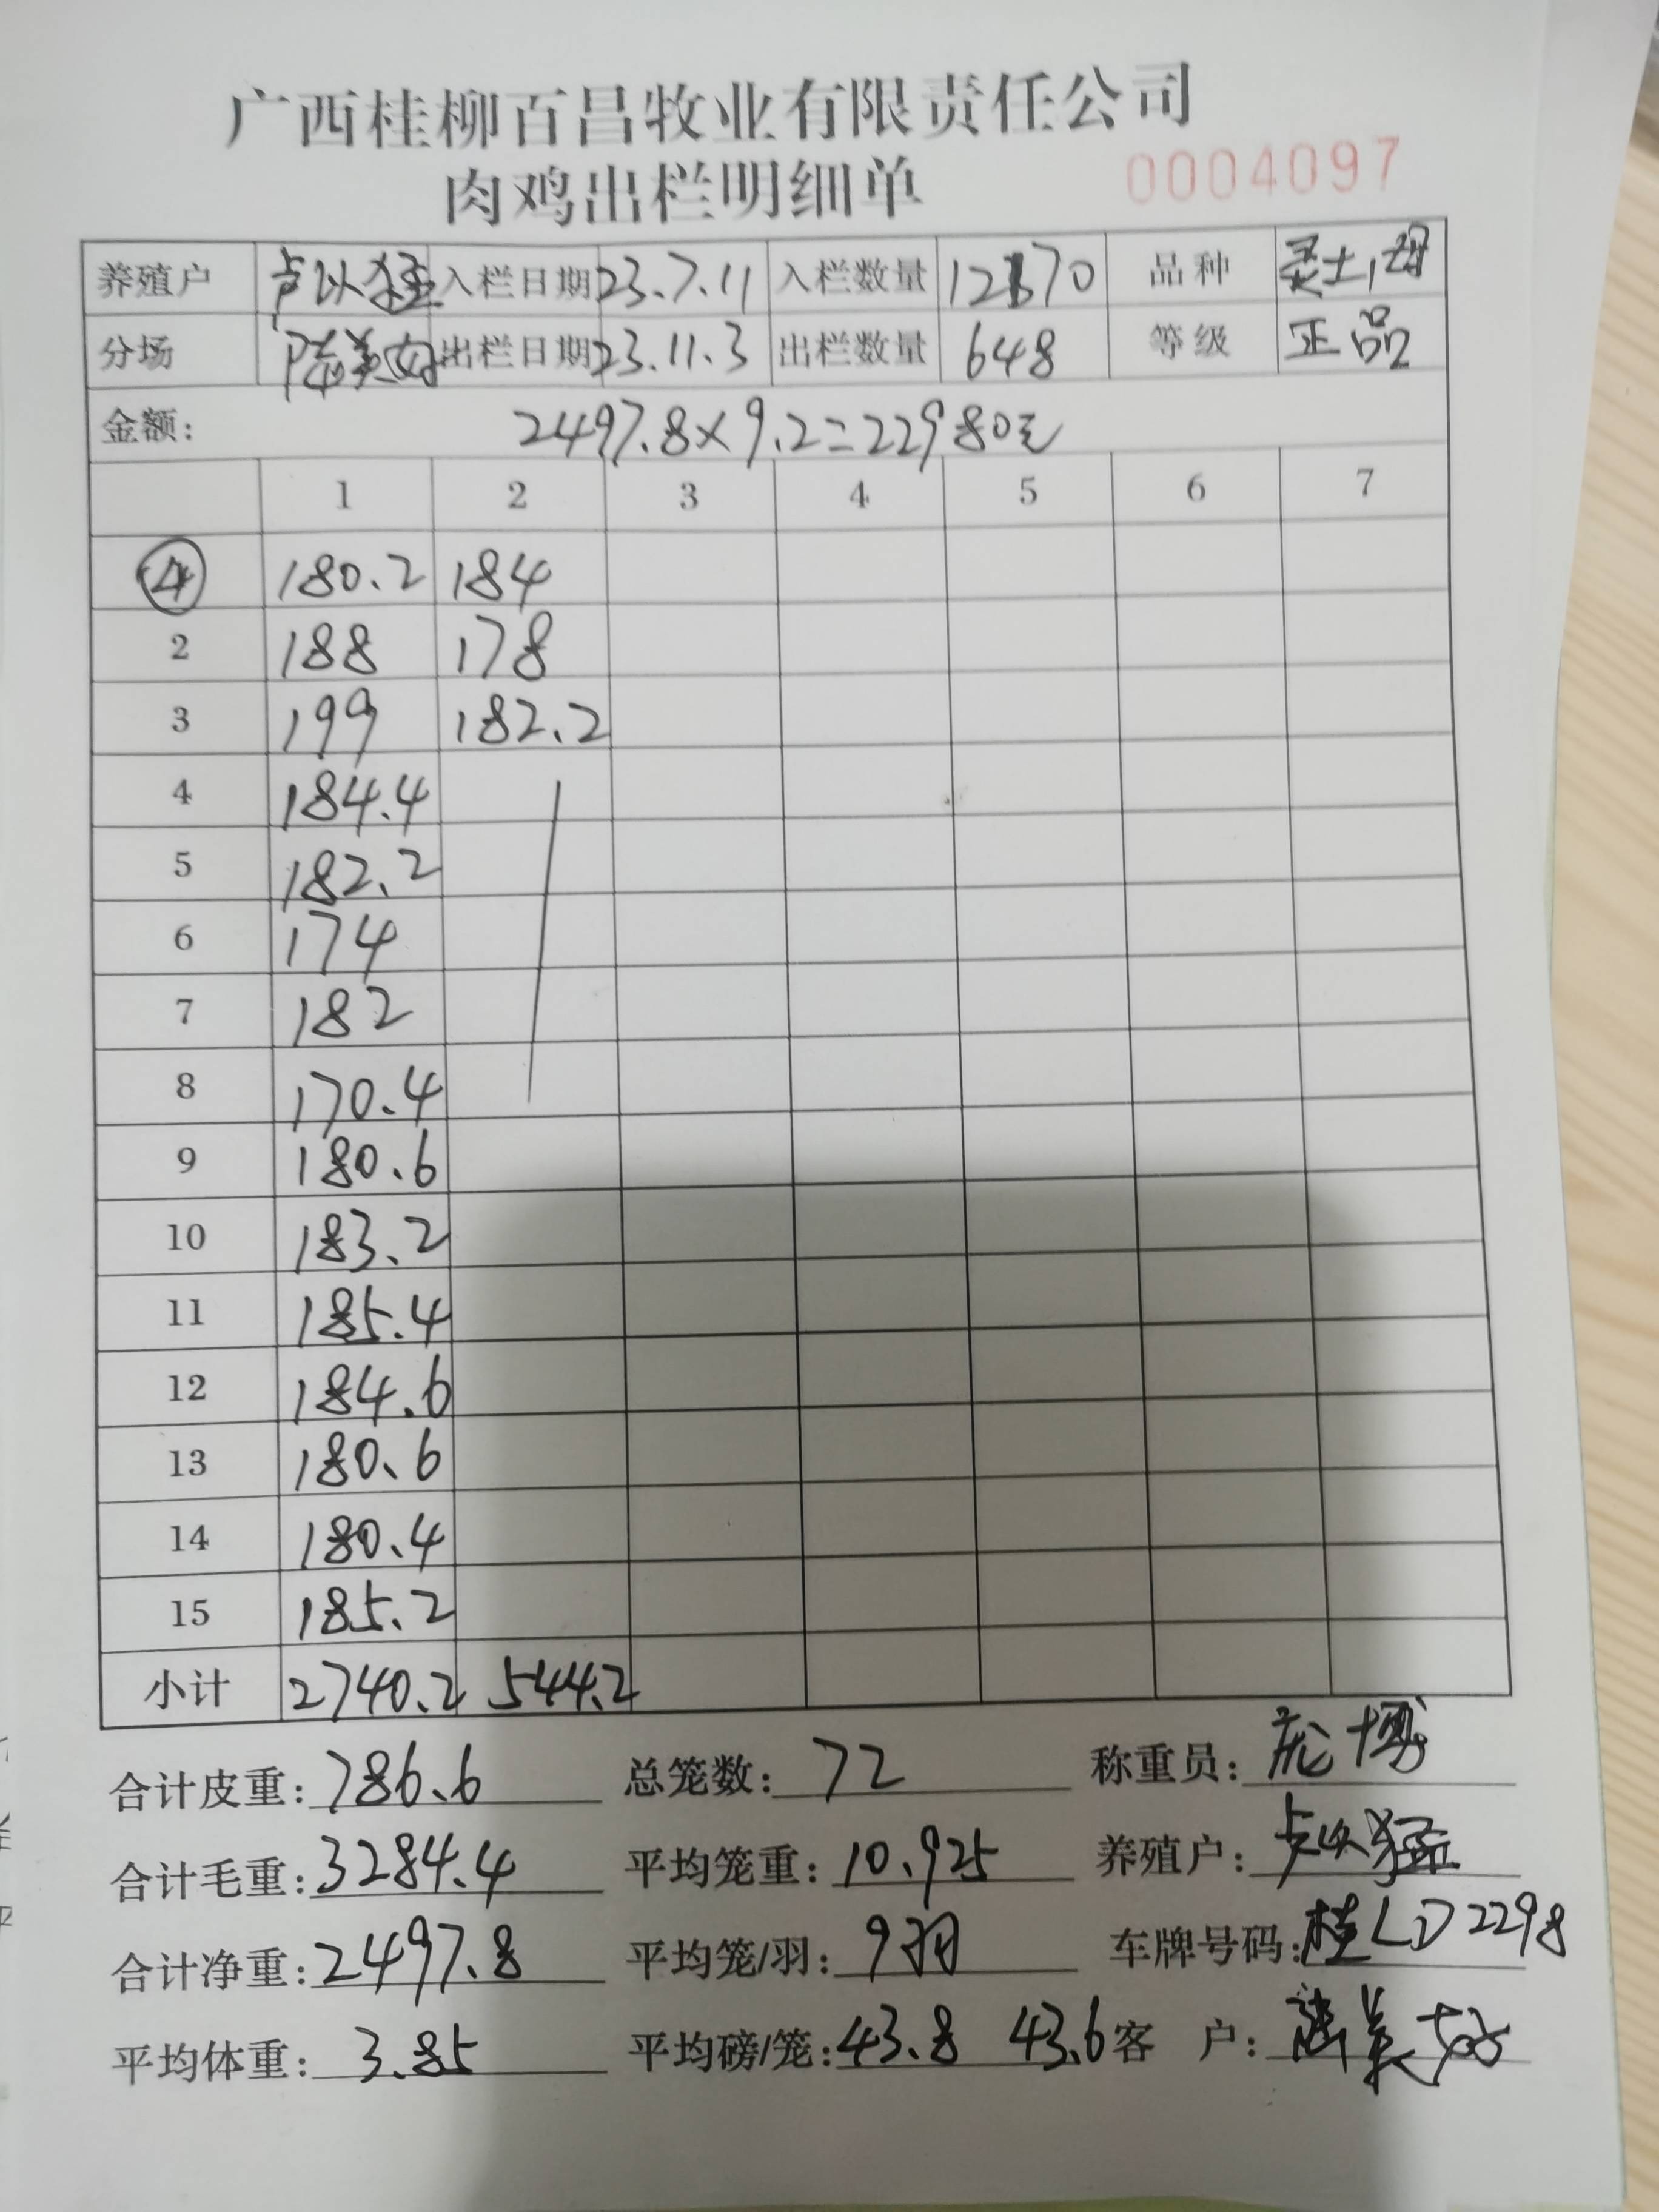 广西桂柳百昌牧业有限责任公司
肉鸡出栏明细单 0004097
养殖户 卢以猛 入栏日期 23.7.11 入栏数量 12670 品种 灵土母
分场 出栏日期 23.11.3 出栏数量 648 等级 正品
金额: 2497.8×9.2=22980元
1 2 3 4 5 6 7
④ 180.2 184
2 188 178
3 199 182.2
4 184.4
5 182.2
6 174
7 182
8 170.4
9 180.6
10 183.2
11 185.4
12 184.6
13 180.6
14 180.4
15 185.2
小计 2740.2 544.2
合计皮重: 786.6 总笼数: 72 称重员: 庞博
合计毛重: 3284.4 平均笼重: 10.925 养殖户: 卢以猛
合计净重: 2497.8 平均笼/羽: 9羽 车牌号码: 桂LD2298
平均体重: 3.85 平均磅/笼: 43.8 43.6 客 户: